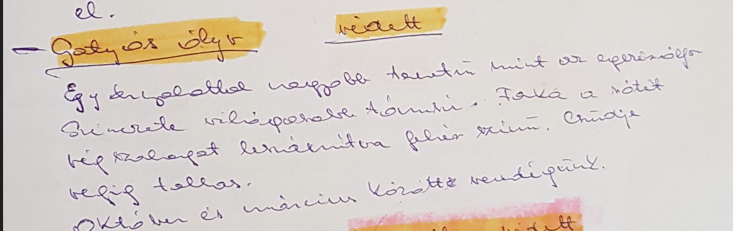 el.
- Gatyás ölyv védett
Egy árnyalattal nagyobb termetű mint az egerészölyv
Színezete világosabb tónusú. Farka a sötét
végszalagot leszámítva fehér színű. Csüdje
végig tollas.
Október és március között vendégünk.
védett